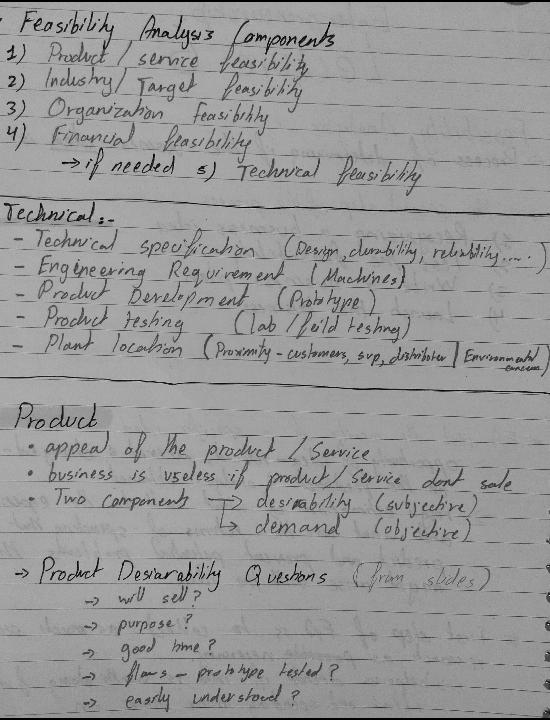 · Feasibility Analysis Components
1) Product / service feasibility
2) Industry / Target feasibility
3) Organization Feasibility
4) Financial feasibility
→ if needed 5) Technical feasibility
Technical:-
- Technical specification (Design, durability, reliability....)
- Engineering Requirement (Machines)
- Product Development (Prototype)
- Product testing (lab / feild testing)
- Plant location (Proximity - customers, sup, distributer | Environmental concerns)
Product
• appeal of the product / Service
• business is useless if product / Service dont sale
• Two components → desirability (subjective)
↳ demand (objective)
→ Product Desiarability Questions (from slides)
→ will sell?
→ purpose?
→ good time?
→ flaws - prototype tested?
→ easily understood?